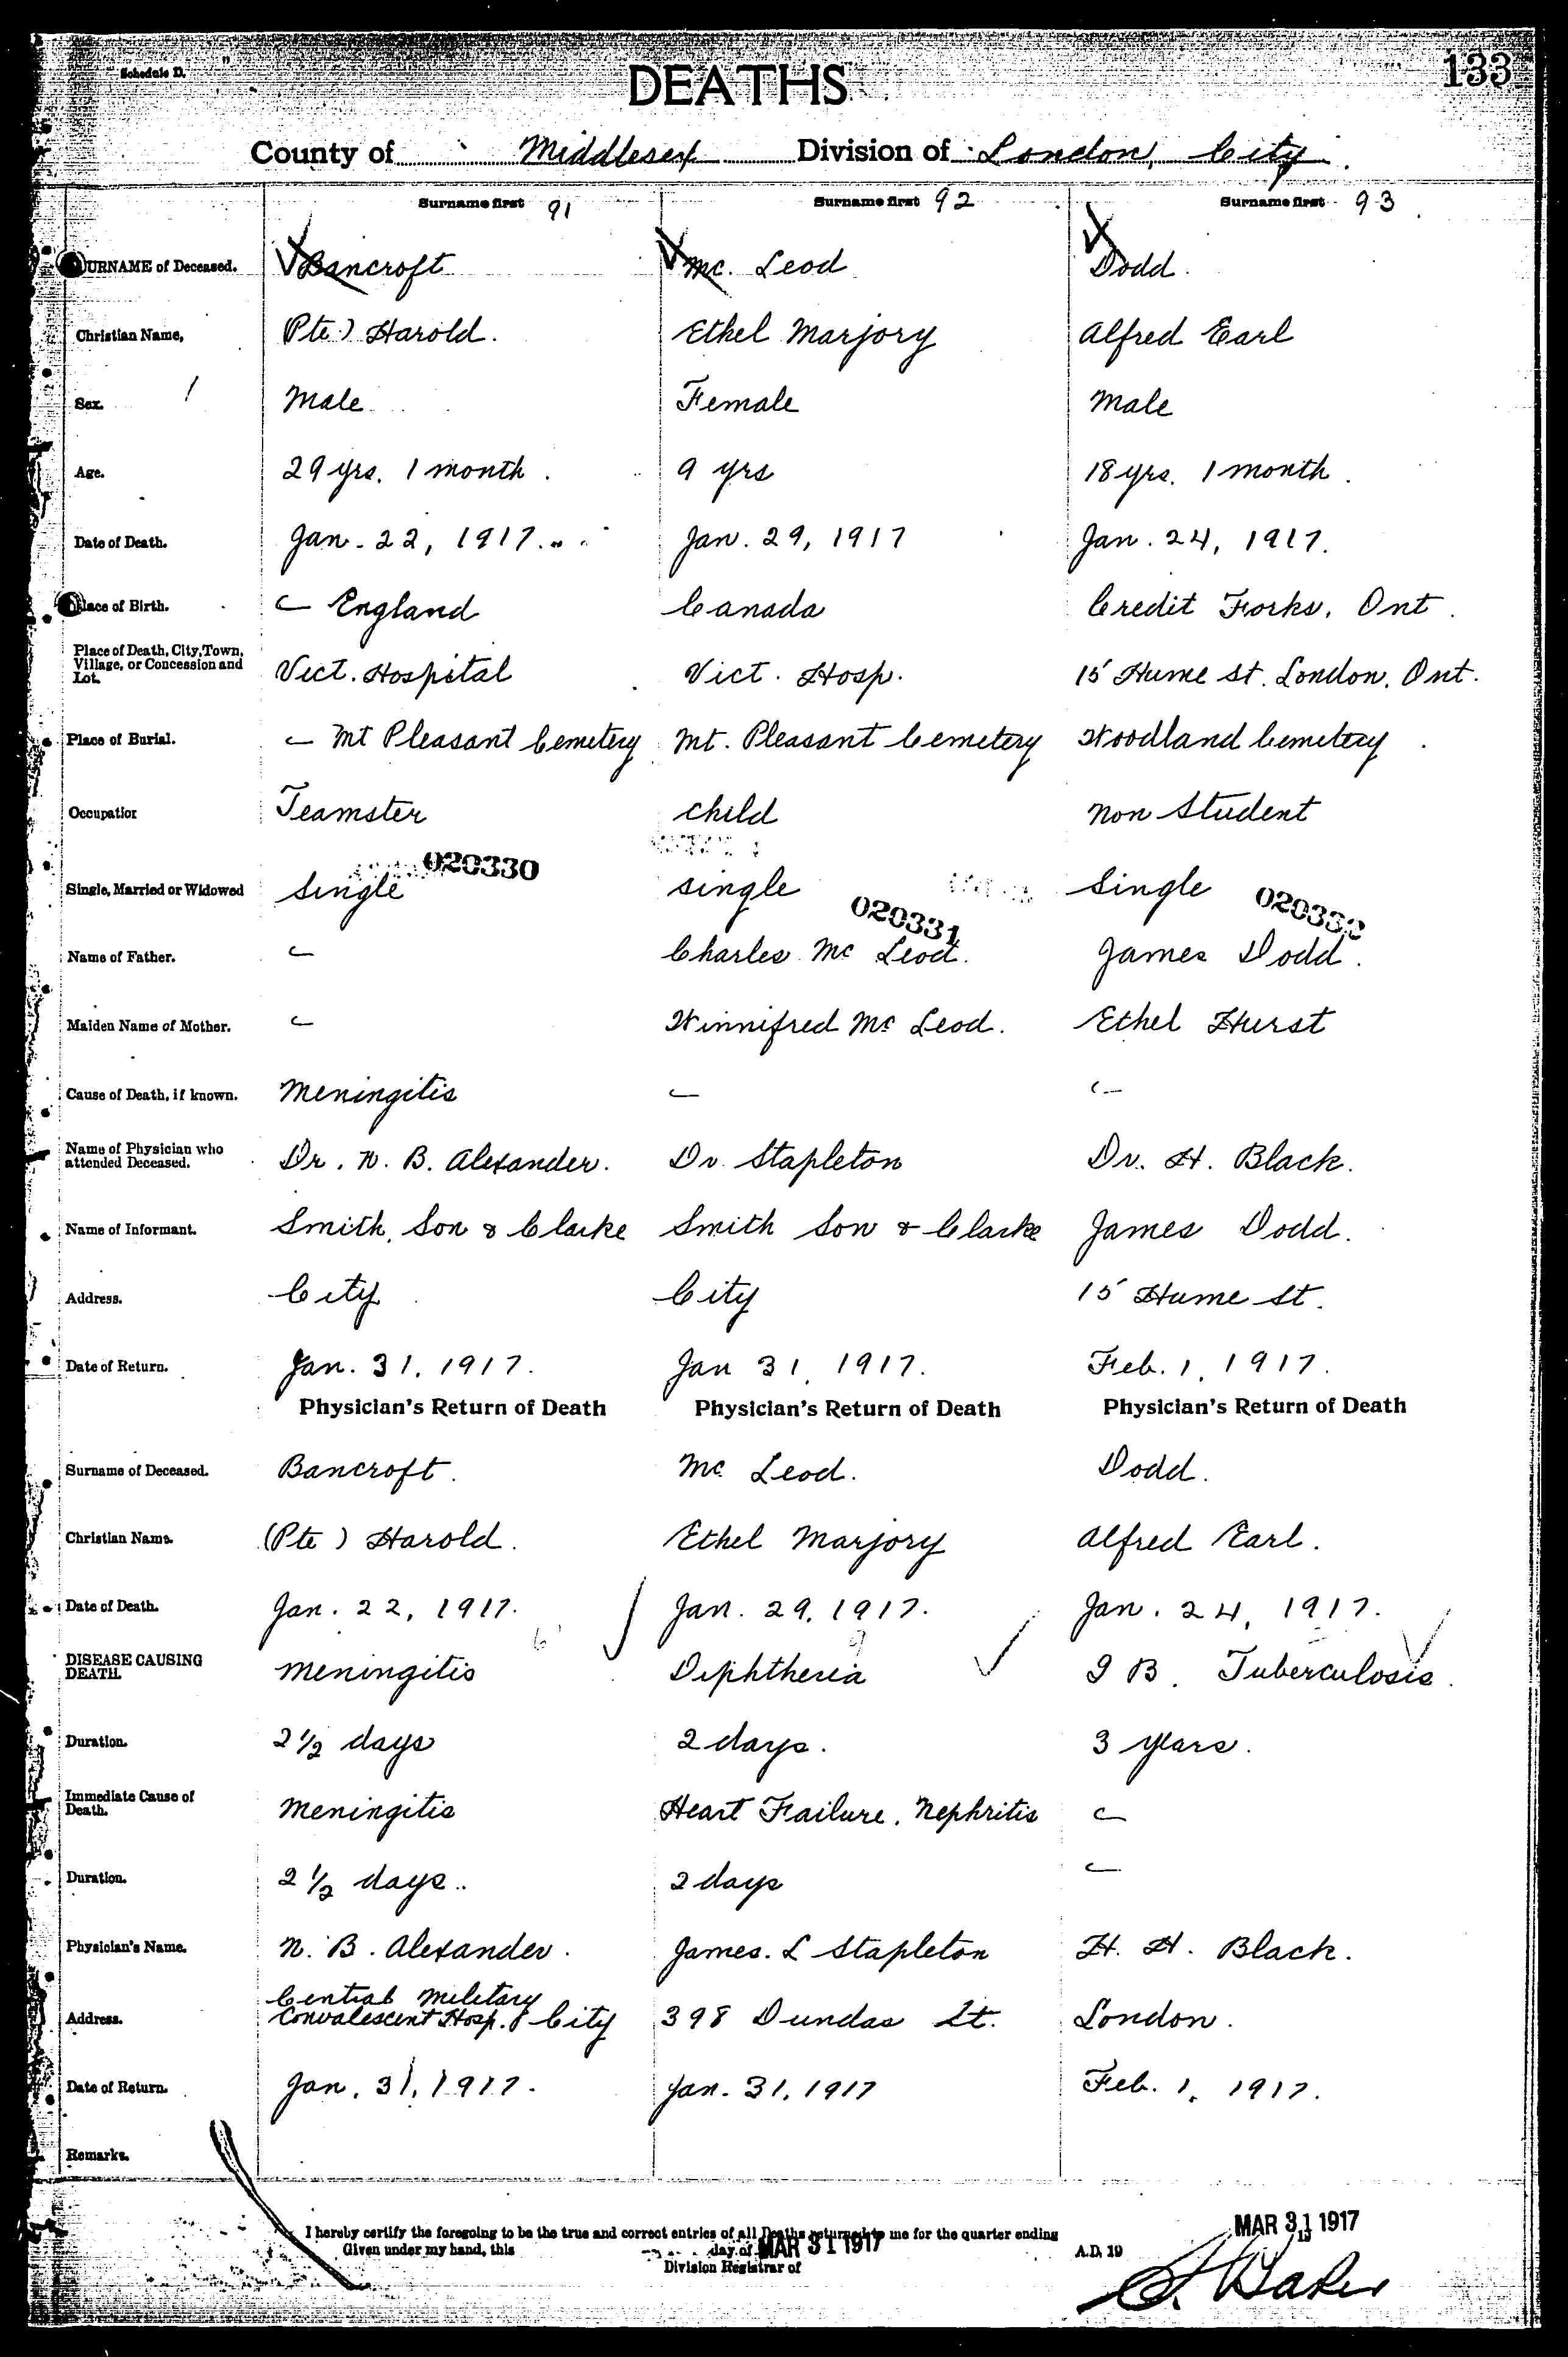 Schedule D.
DEATHS
133
County of Middlesex Division of London, City
Surname first 91 Surname first 92 Surname first 93
SURNAME of Deceased. Bancroft Mc. Leod Dodd.
Christian Name, (Pte) Harold. Ethel Marjory Alfred Earl
Sex. Male Female Male
Age. 29 yrs. 1 month. 9 yrs 18 yrs. 1 month.
Date of Death. Jan. 22, 1917. Jan. 29, 1917 Jan. 24, 1917.
Place of Birth. — England Canada Credit Forks, Ont.
Place of Death, City, Town,
Village, or Concession and
Lot. Vict. Hospital Vict. Hosp. 15 Hume St. London, Ont.
Place of Burial. — Mt Pleasant Cemetery Mt. Pleasant Cemetery Woodland Cemetery
Occupation Teamster child non Student
020330
Single, Married or Widowed Single single Single
020331 020332
Name of Father. — Charles Mc Leod. James Dodd.
Maiden Name of Mother. — Winnifred Mc Leod. Ethel Hurst
Cause of Death, if known. Meningitis — —
Name of Physician who
attended Deceased. Dr. N. B. Alexander. Dr. Stapleton Dr. H. Black.
Name of Informant. Smith, Son & Clarke Smith Son & Clarke James Dodd.
Address. City City 15 Hume St.
Date of Return. Jan. 31, 1917. Jan 31, 1917. Feb. 1, 1917.
Physician's Return of Death Physician's Return of Death Physician's Return of Death
Surname of Deceased. Bancroft. Mc Leod. Dodd.
Christian Name. (Pte) Harold. Ethel Marjory Alfred Earl.
Date of Death. Jan. 22, 1917. Jan. 29, 1917. Jan. 24, 1917.
DISEASE CAUSING
DEATH. Meningitis Diphtheria Tuberculosis.
Duration. 2 1/2 days 2 days. 3 years.
Immediate Cause of
Death. Meningitis Heart Failure, Nephritis —
Duration. 2 1/2 days. 2 days —
Physician's Name. N. B. Alexander. James. L Stapleton H. H. Black.
Central Military
Address. Convalescent Hosp. City 398 Dundas St. London.
Date of Return. Jan. 31, 1917. Jan. 31, 1917 Feb. 1, 1917.
Remarks.
I hereby certify the foregoing to be the true and correct entries of all Deaths returned to me for the quarter ending MAR 31 1917 19
Given under my hand, this day of MAR 31 1917 A.D. 19
Division Registrar of